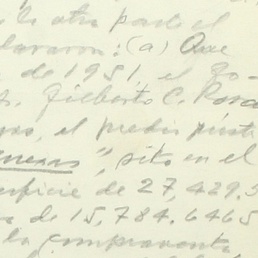 la otra parte el
clararon: (a) Que
de 1951, el Go-
r. Gilberto C. Rosa
el predio rústi
", sito en el
erficie de 27,429.3
de 15,784.6465
la compraventa,